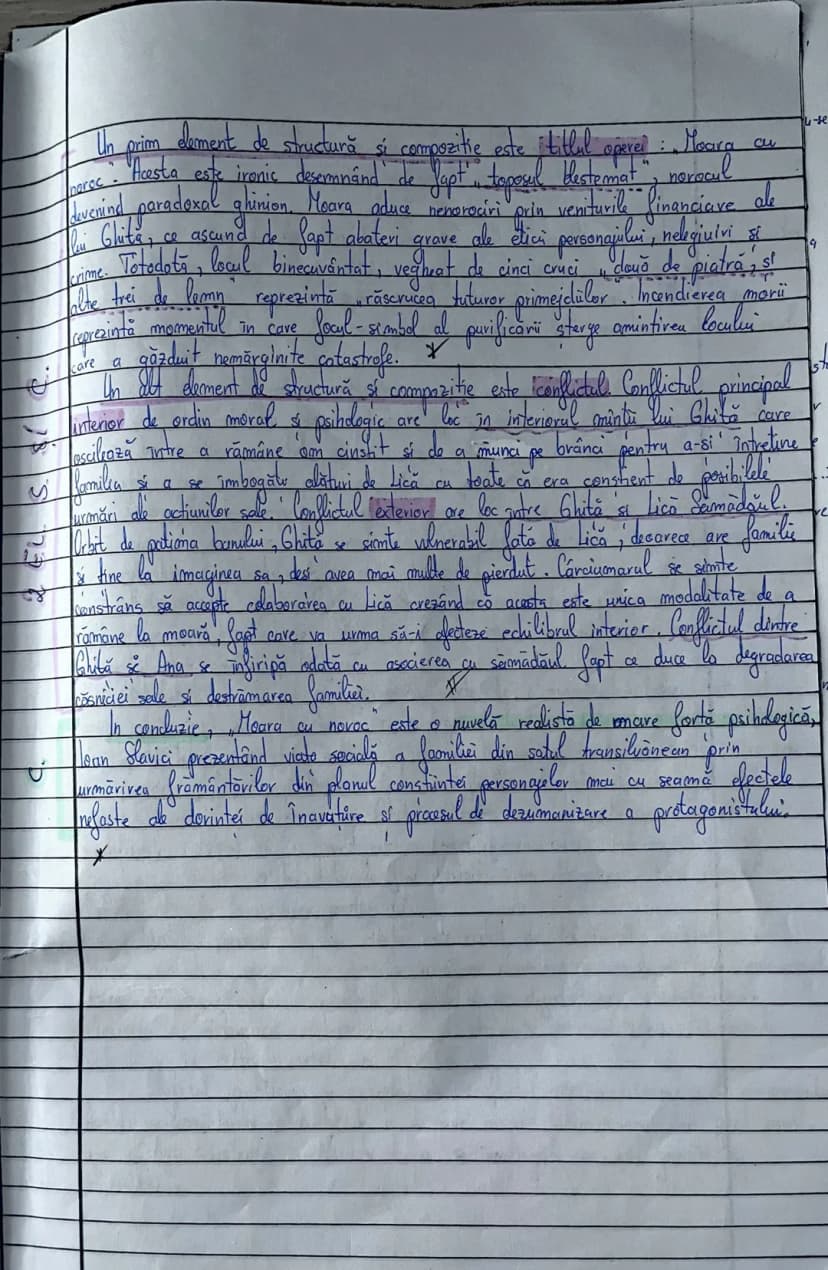 Un prim element de structură și compoziție este titlul operei: „Moara cu
noroc". Acesta este ironic desemnând de fapt „toposul blestemat", norocul
devenind paradoxal ghinion. Moara aduce nenorociri prin veniturile financiare ale
lui Ghiță, ce ascund de fapt abateri grave ale eticii personajului, nelegiuiri și
crime. Totodată, locul binecuvântat, vegheat de cinci cruci „două de piatră, și
alte trei de lemn" reprezintă „răscrucea tuturor primejdiilor. Incendierea morii
reprezintă momentul în care focul-simbol al purificării șterge amintirea locului
care a găzduit nemărginite catastrofe.
Un alt element de structură și compoziție este conflictul. Conflictul principal
interior de ordin moral și psihologic are loc în interiorul minții lui Ghiță care
oscilează între a rămâne om cinstit și de a munci pe brânci pentru a-și întreține
familia și a se îmbogăți alături de Lică cu toate că era conștient de posibilele
urmări ale acțiunilor sale. Conflictul exterior are loc între Ghiță și Lică Sămădăul.
Orbit de patima banului, Ghiță se simte vulnerabil față de Lică, deoarece are familie
și ține la imaginea sa, deși avea mai multe de pierdut. Cârciumarul se simte
constrâns să accepte colaborarea cu Lică crezând că acesta este unica modalitate de a
rămâne la moară, fapt care va urma să-i afecteze echilibrul interior. Conflictul dintre
Ghiță și Ana se înfiripă odată cu asocierea cu sămădăul fapt ce duce la degradarea
căsniciei sale și destrămarea familiei.
În concluzie, „Moara cu noroc" este o nuvelă realistă de mare forță psihologică,
Ioan Slavici prezentând viața socială a familiei din satul transilvănean prin
urmărirea frământărilor din planul conștiinței personajelor mai cu seamă efectele
nefaste ale dorinței de înavuțire și procesul de dezumanizare a protagonistului.
2 EL. S și C.
C.